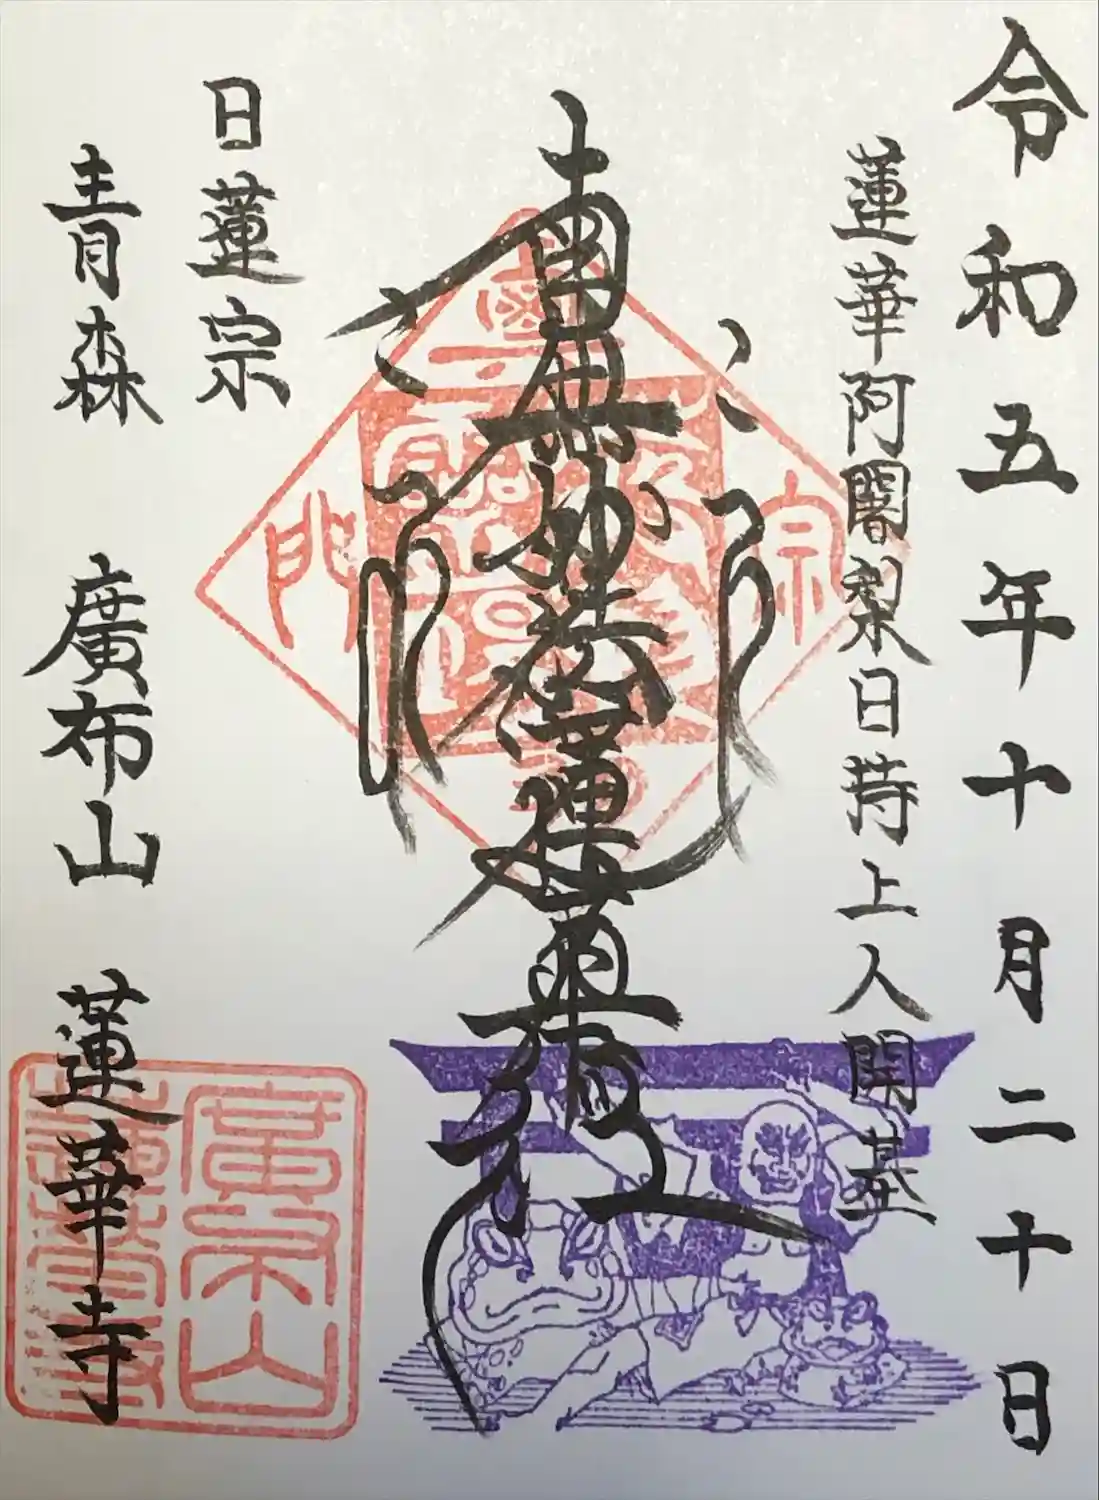 令和五年十月二十日
蓮華阿闍梨日持上人開基
南無妙法蓮華経
日蓮宗
青森 廣布山 蓮華寺
宗
門
廣布山
蓮華寺